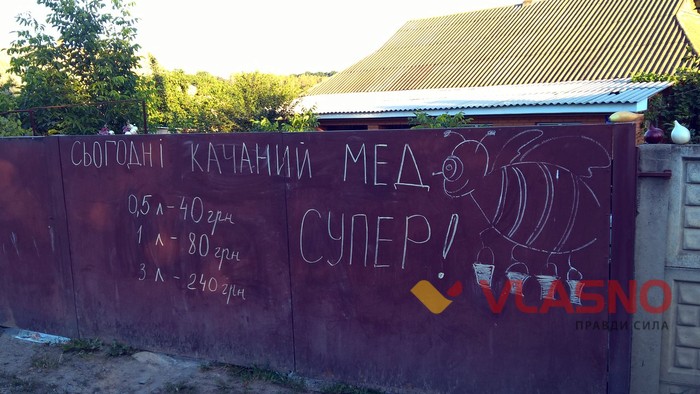 СЬОГОДНІ КАЧАНИЙ МЕД
0,5 л - 40 грн
1 л - 80 грн
3 л - 240 грн
СУПЕР!
VLASNO
ПРАВДИ СИЛА